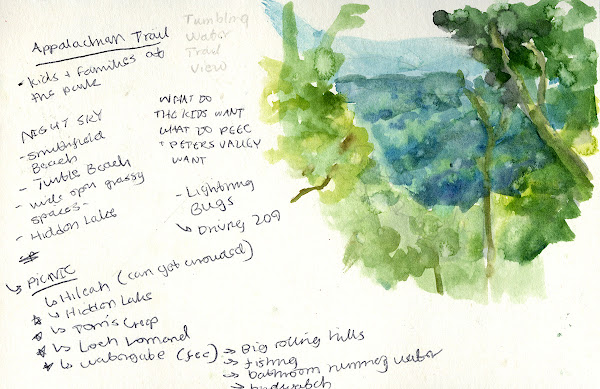 Appalachian Trail
- kids + families at
the park
Tumbling
Water
Trail
View
NIGHT SKY
- Smithfield
Beach
- Turtle Beach
- wide open grassy
spaces -
- Hidden Lake
WHAT DO
THE KIDS WANT
WHAT DO PEEC
+ PETERS VALLEY
WANT
- Lightning
Bugs
↳ Driving 209
↳ PICNIC
↳ Hilcah (can get crowded)
↳ Hidden Lake
↳ Tom's Creep
↳ Loch Lomand
↳ Watergate (fee)
→ Big rolling hills
→ fishing
→ bathroom running water
→ birdwatch